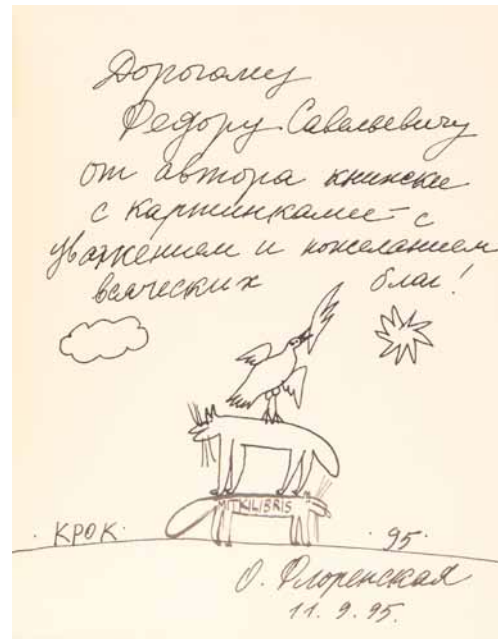 Дорогому
Федору Савельевичу
от автора книжки
с картинками – с
уважением и пожеланием
всяческих благ!
MITKILIBRIS
·КРОК· ·95·
О. Флоренская
11.9.95.